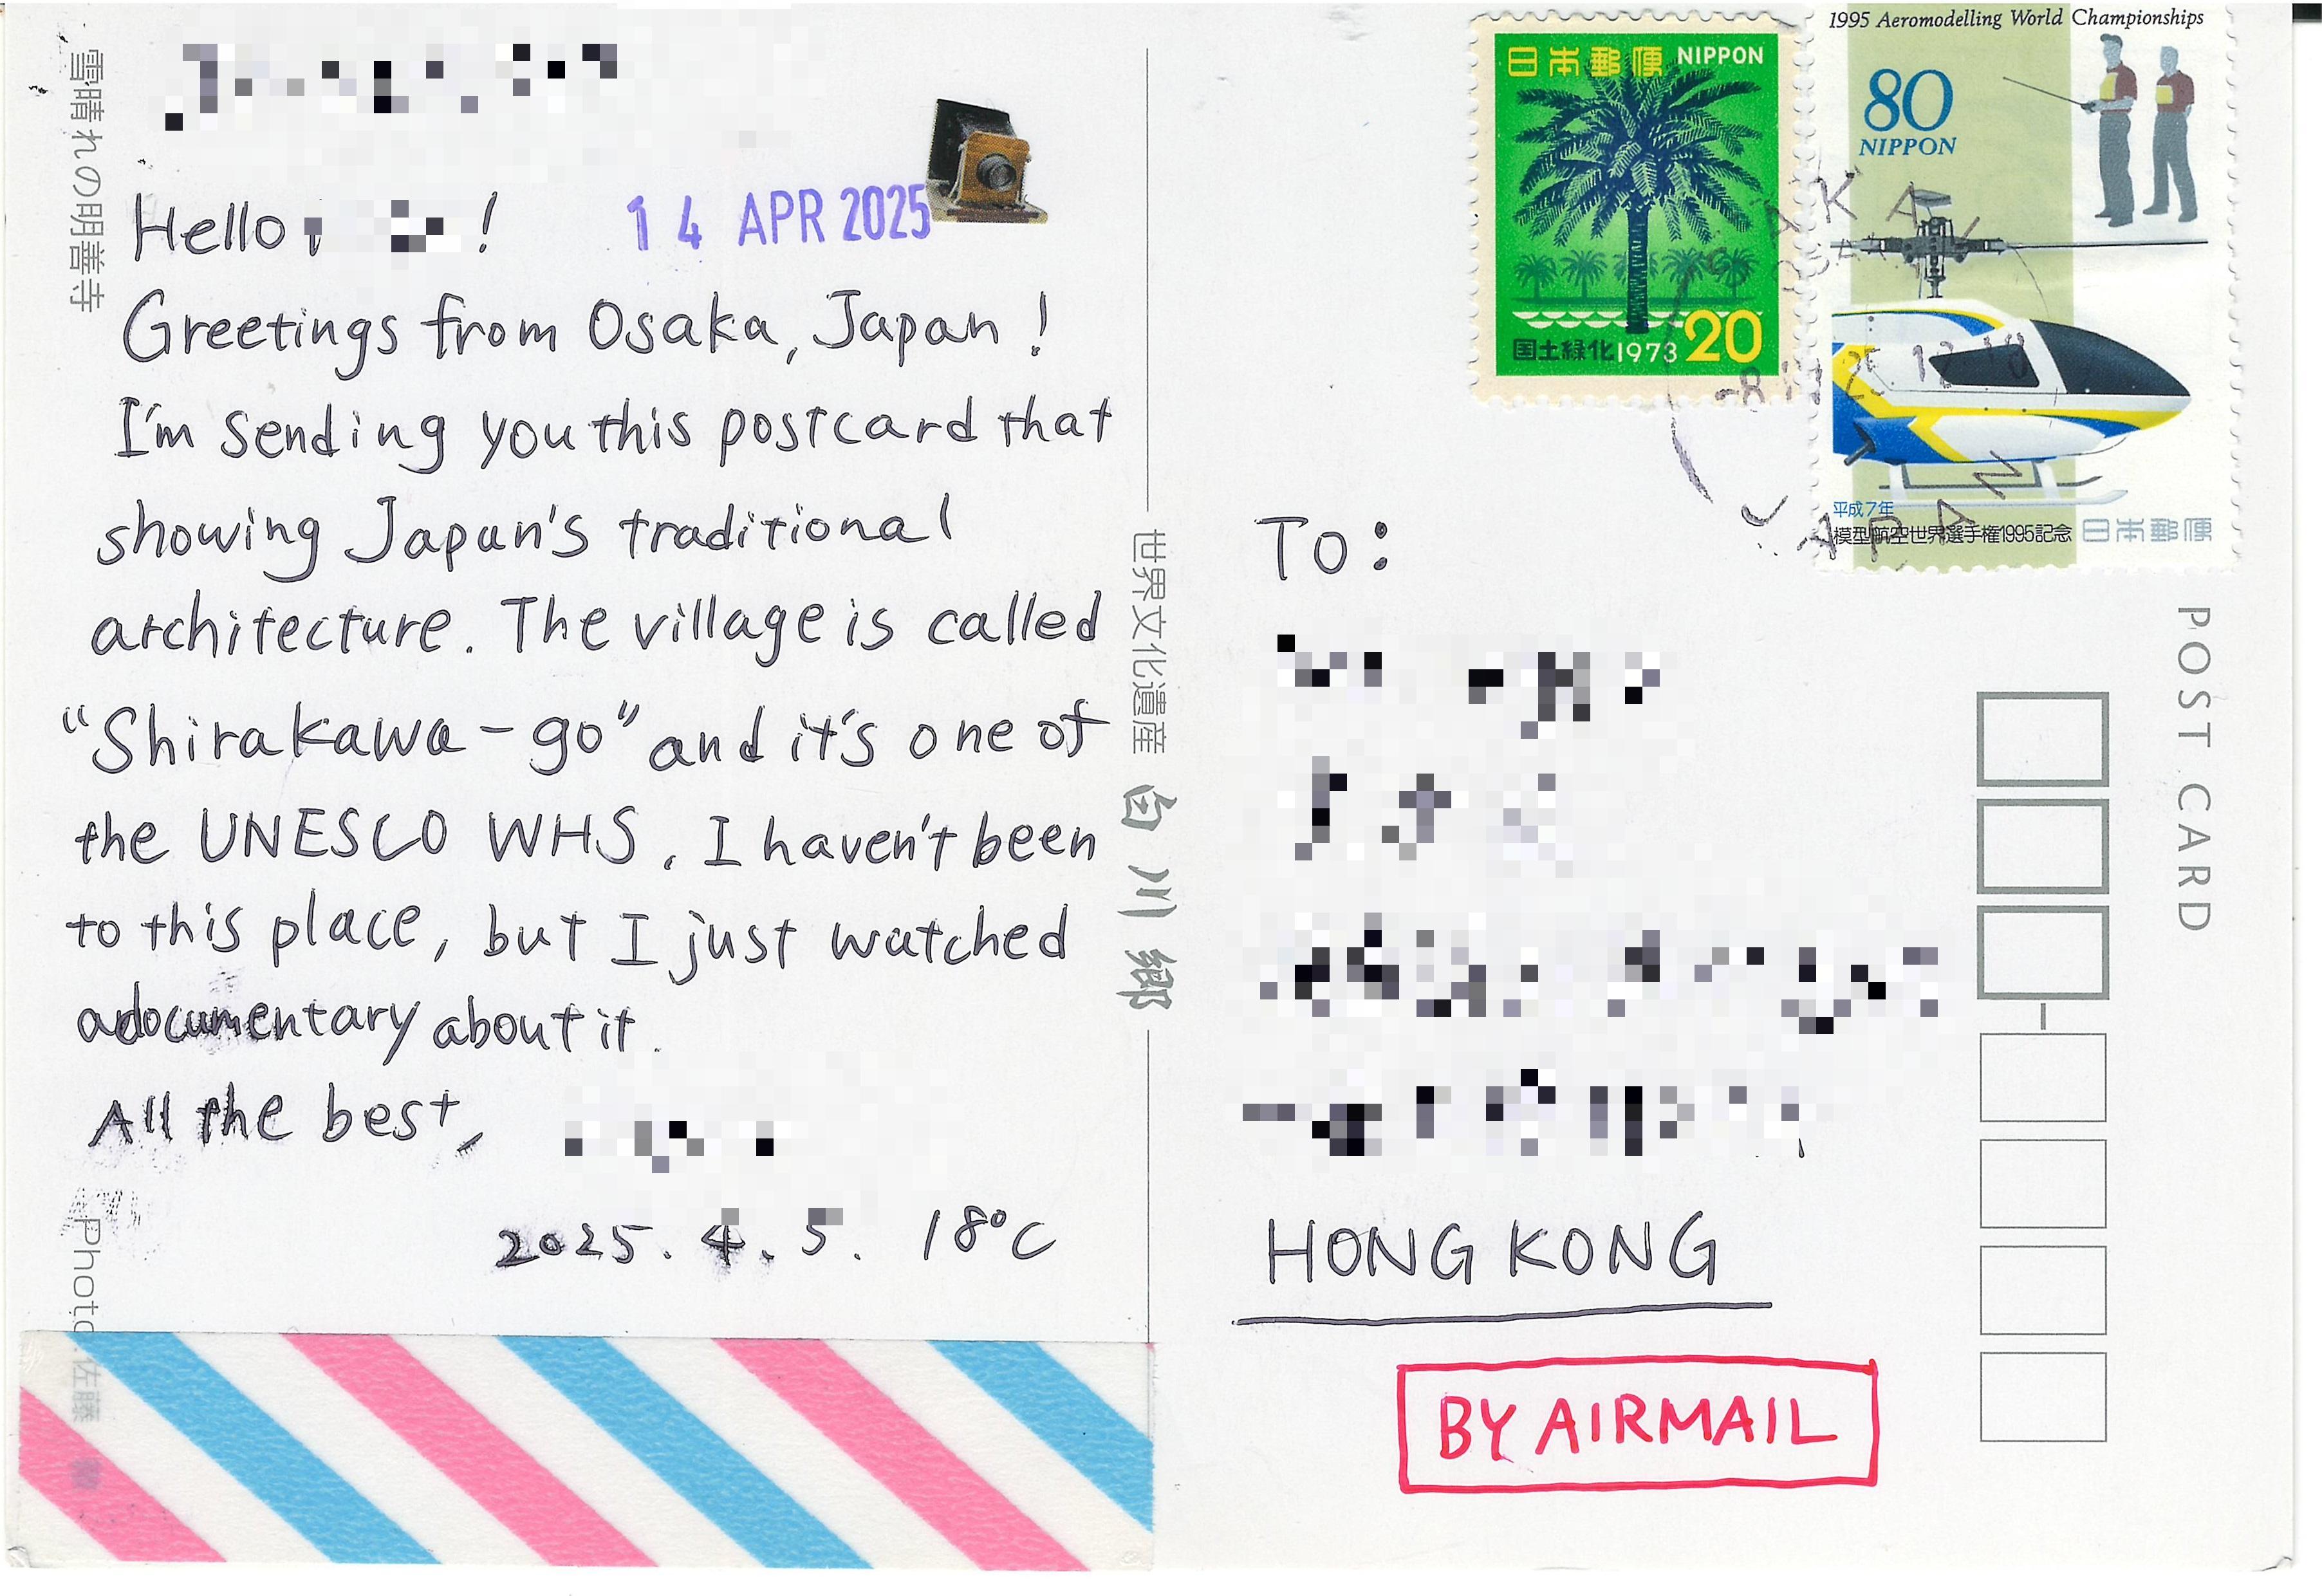 雪晴れの明善寺
Hello !
14 APR 2025
Greetings from Osaka, Japan!
I'm sending you this postcard that
showing Japan's traditional
architecture. The village is called
"Shirakawa-go" and it's one of
the UNESCO WHS. I haven't been
to this place, but I just watched
a documentary about it.
All the best,
2025. 4. 5. 18°C
Photo. 佐藤
世界文化遺産 白川郷
日本郵便 NIPPON
国土緑化1973 20
1995 Aeromodelling World Championships
80
NIPPON
平成7年
模型航空世界選手権1995記念 日本郵便
JAPAN
POST CARD
To:
HONG KONG
BY AIRMAIL